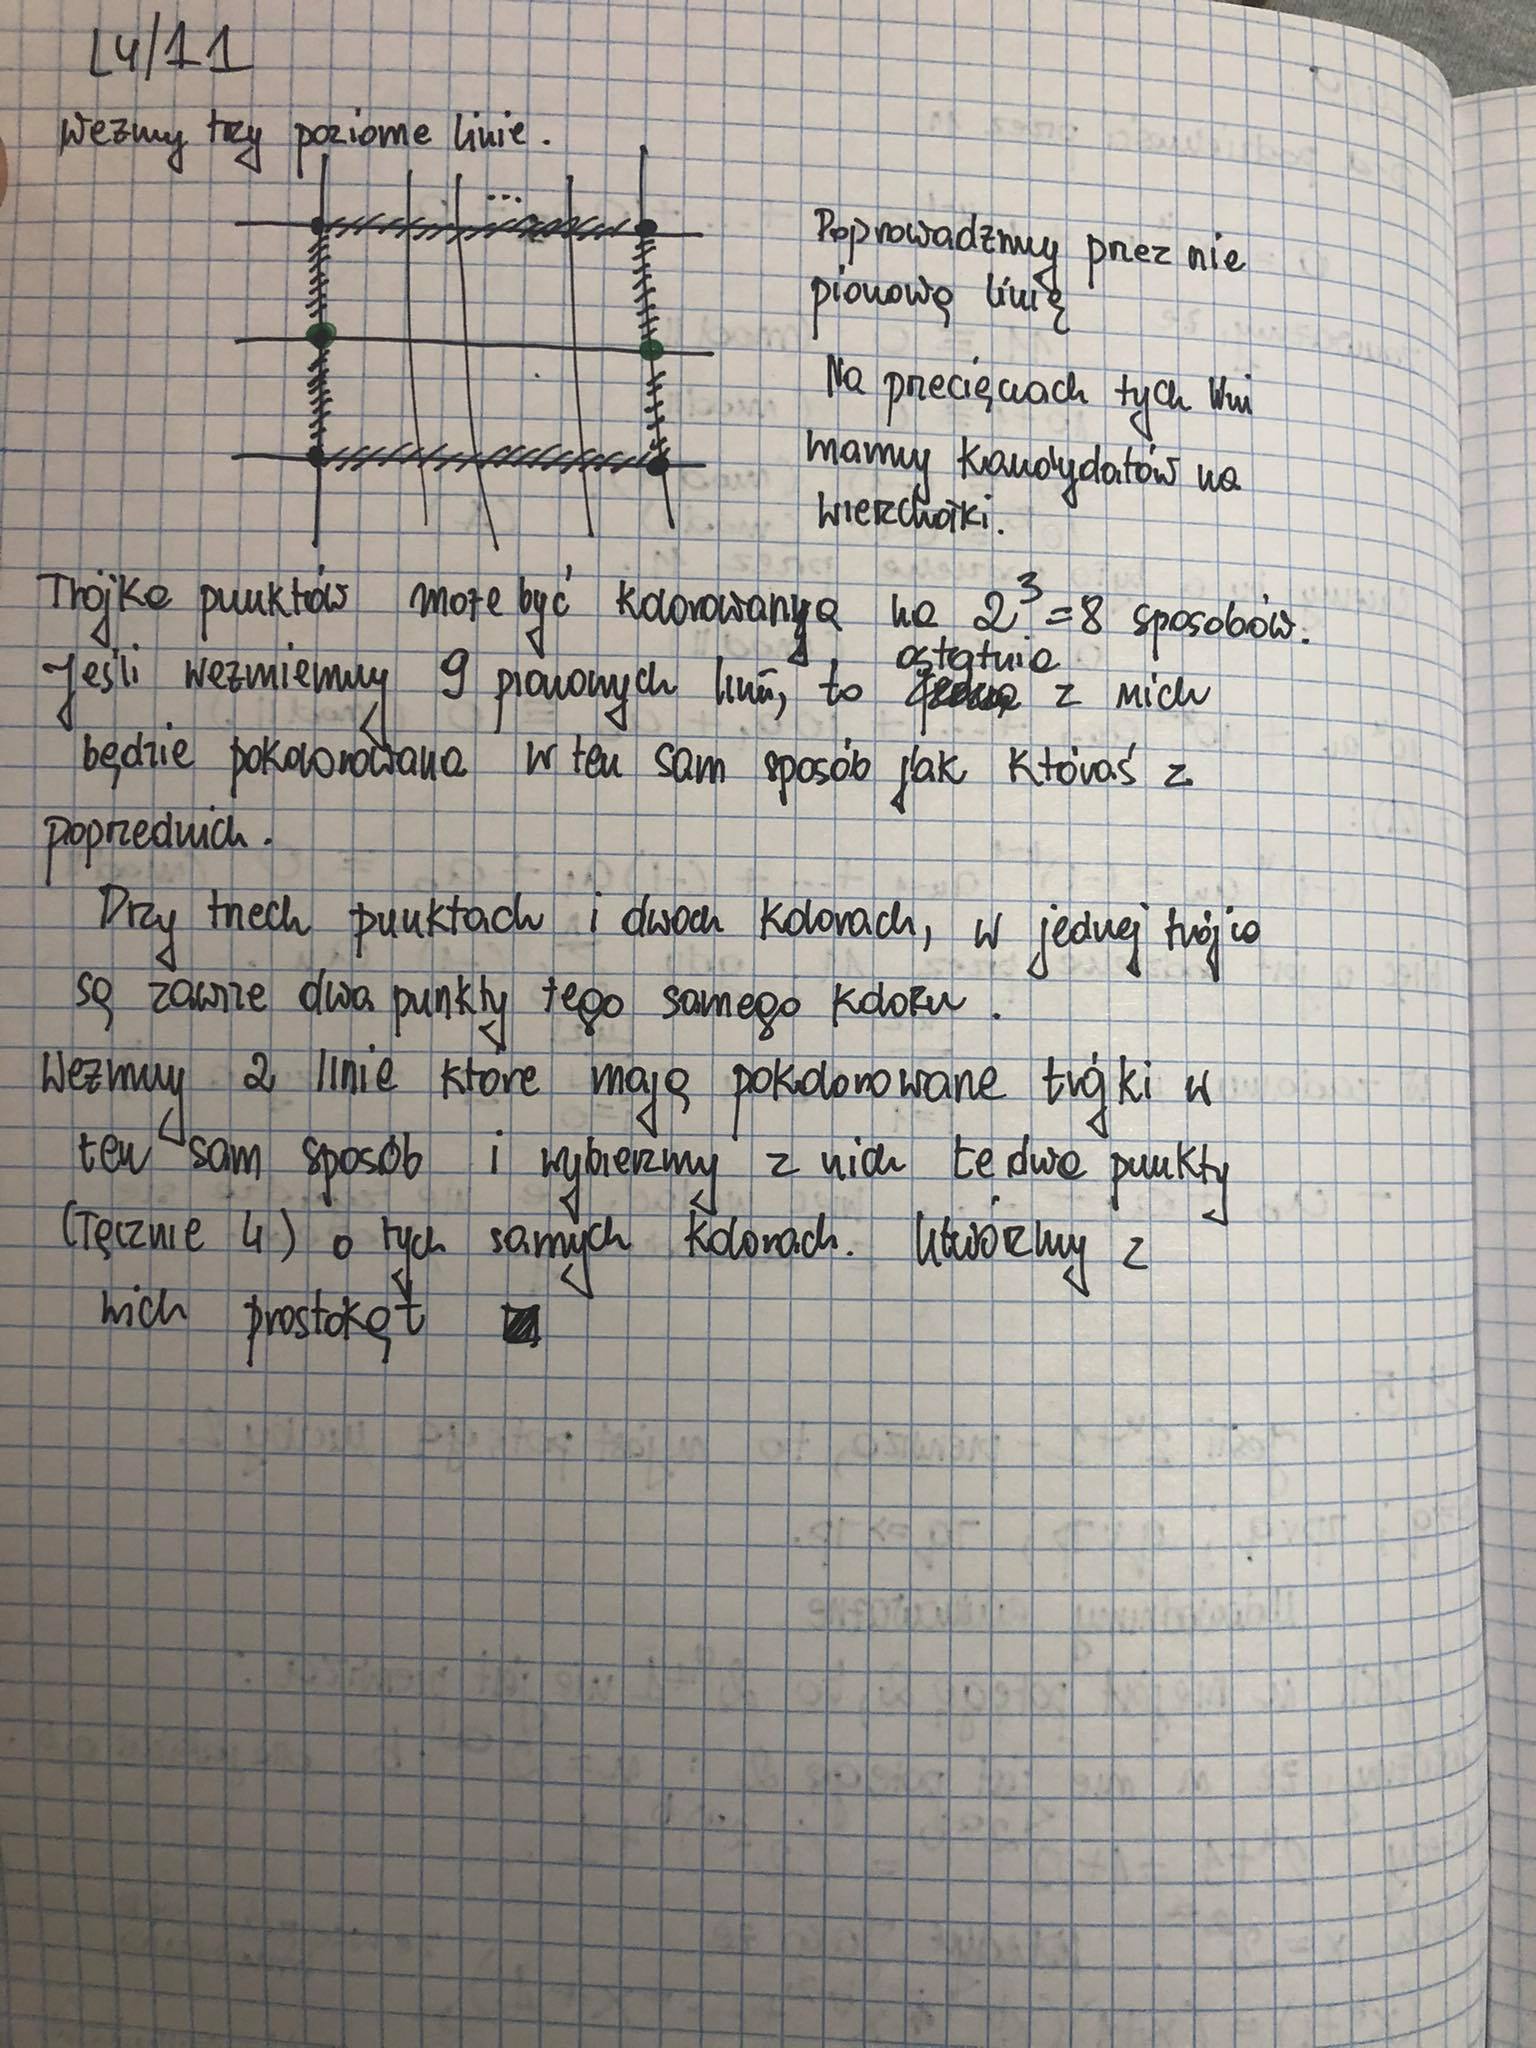 L4/11
Weźmy trzy poziome linie.
...
Poprowadźmy przez nie
pionową linię
Na przecięciach tych linii
mamy kandydatów na
wierzchołki.
Trójka punktów może być kolorowana na 2³ = 8 sposobów.
Jeśli weźmiemy 9 pionowych linii, to ostatnia z nich
będzie pokolorowana w ten sam sposób jak któraś z
poprzednich.
Przy trzech punktach i dwóch kolorach, w jednej trójce
są zawsze dwa punkty tego samego koloru.
Weźmy 2 linie które mają pokolorowane trójki w
ten sam sposób i wybierzmy z nich te dwa punkty
(łącznie 4) o tych samych kolorach. Utwórzmy z
nich prostokąt